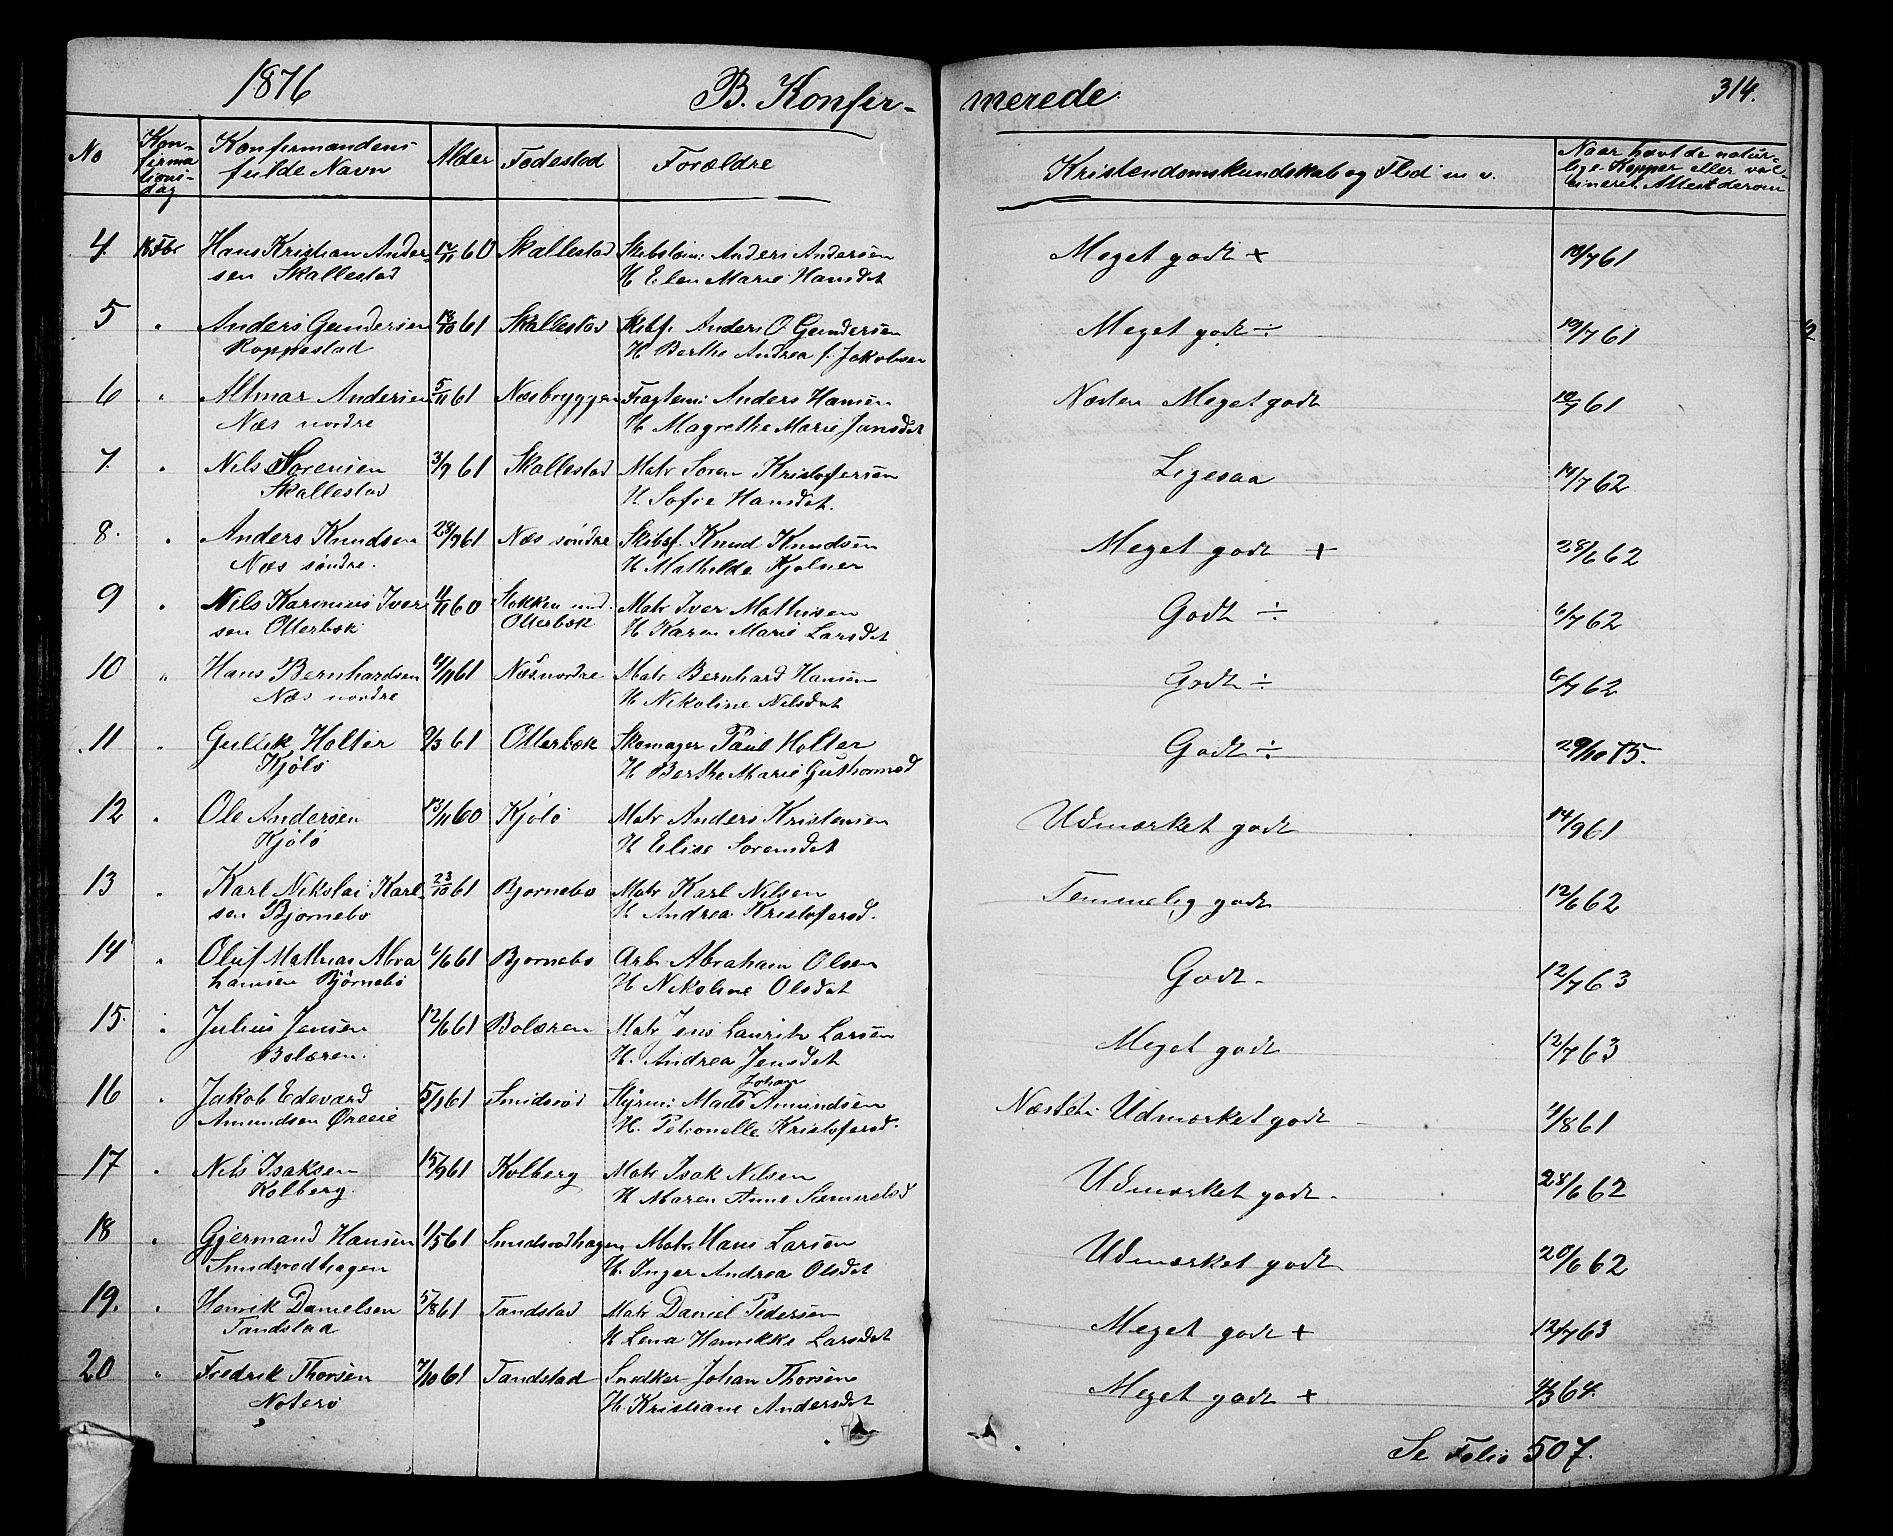 1876
B. Konfir-
merede.
314.
No
Kon-
firma
tions-
dag
Konfirmandens
fulde Navn
Alder
Fødested
Forældre
Kristendomskundskab og Flid m v.
Naar havt de natur-
lige Kopper eller vac-
cineret. Attest derom
4.
Hans Kristian Ander-
sen Skallestad
60
Skallestad
Anders Andersen
H Elen Marie Hansdet
Meget godt +
19/7 61
5
"
Anders Gundersen
Roppestad
18/10 61
Skallestad
Skibsf. Anders O Gundersen
H Berthe Andrea f. Jakobsen
Meget godt ÷
19/7 61
6
"
Altmar Andersen
Næs nordre
5/11 61
Næsbryggen
Anders Hansen
H Magrethe Marie Jansdet
Næsten Meget godt
19/7 61
7.
"
Nils Sörensen
Skallestad
3/9 61
Skallestad
Matr Soren Kristofersen
H Sofie Hansdet.
Ligesaa
14/7 62
8.
"
Anders Knudsen
Næs søndre.
28/9 61
Næs søndre
Skibsf. Knud Knudsen
H Mathilde Kjølner
Meget godt +
28/6 62
9
"
Nils Karenius Iver
sen Otterbæk
11/11 60
Stokken und.
Otterbæk
Matr Iver Mathisen
H Karen Marie Larsdet
Godt ÷
6/7 62
10
"
Hans Bernhardsen
Næs nordre
61
Næs nordre
Matr Bernhard Hansen
H Nikoline Nilsdet
Godt ÷
6/7 62
11
"
Gullik Holter
Kjølø
9/3 61
Otterbæk
Skomager Paul Holter
H Berthe Marie Guthormsd
Godt ÷
29/10 75.
12
"
Ole Andersen
Kjølø
13/11 60
Kjølø
Matr Anders Kristensen
H Elise Sorensdet
Udmærket godt
14/9 61
13
"
Karl Nikolai Karl-
sen Bjørnebo
23/10 61
Bjornebo
Matr Karl Nilsen
H Andrea Kristofersd.
Temmelig godt
12/6 62
14
"
Oluf Mathias Abra
hamsen Bjørnebo
6/6 61
Bjornebo
Arb. Abraham Olsen
H Nikoline Olsdet
Godt.
12/7 63
15.
"
Julius Jensen
Bolæren.
12/6 61
Bolæren
Matr Jens Lauritz Larsen
H. Andrea Jensdet
Meget godt
12/7 63
16
"
Jakob Edevard
Amundsen Øreeie
61
Smidsrød
Johan
Styrm: Mads Amundsen
H. Petronelle Kristofersd.
Næsten Udmærket godt
61
17
"
Nils Isaksen
Kolberg.
15/9 61
Kolberg
Matr Isak Nilsen
H Maren Anne Samuelsd
Udmærket godt.
28/6 62
18
"
Gjermand Hansen
Smidsrødhagen
1/5 61
Smidsrødhagen
Matr. Hans Larsen
H. Inger Andrea Olsdet
Udmærket godt
20/6 62
19.
"
Henrik Danielsen
Tandstad
5/8 61
Tandstad
Matr Daniel Pedersen
H Lena Henrikke Larsdet
Meget godt +
12/7 63
20
"
Fredrik Thorsen
Noterø
7/10 61
Tandstad
Snedker Johan Thorsen
H. Kristiane Andersdet
Meget godt +
64.
Se Folio 507.